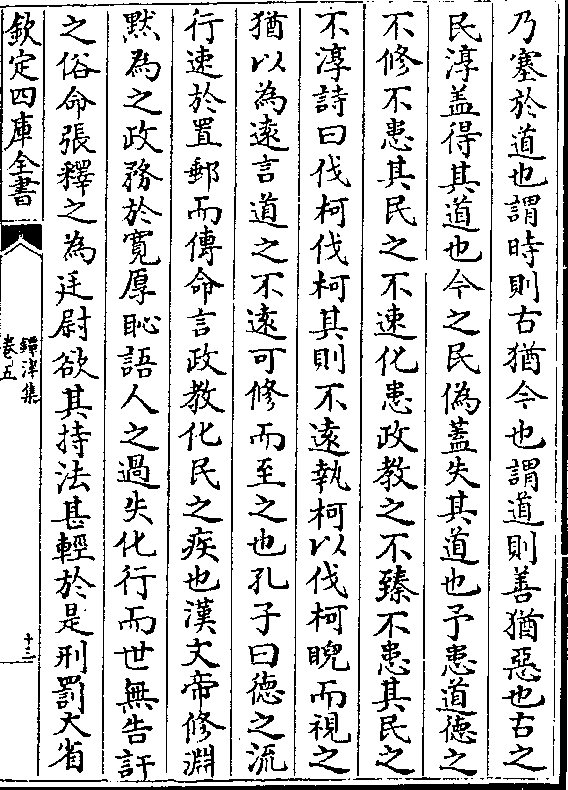 乃塞於道也謂時則古猶今也謂道則善猶惡也古之
民淳蓋得其道也今之民偽蓋失其道也予患道德之
不修不患其民之不速化患政教之不臻不患其民之
不淳詩曰伐柯伐柯其則不遠執柯以伐柯睨而視之
猶以為遠言道之不遠可修而至之也孔子曰德之流
行速於置郵而傳命言政教化民之疾也漢文帝修淵
黙為之政務於寛厚恥語人之過失化行而世無告訐
之俗命張釋之為廷尉欲其持法甚輕於是刑罰大省
欽定四庫全書
鐔津集
卷五
十三